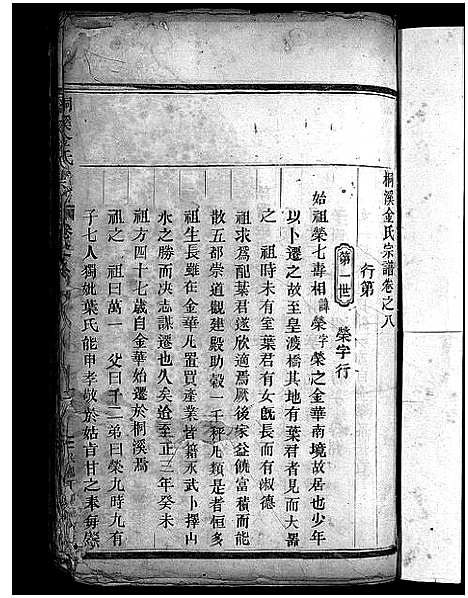 桐溪金氏宗譜卷之八
行第
第一世 榮字行
始祖榮七專相諱榮字榮之金華南境故居也少年
以卜遷之故至皇渡橋其地有葉君者見而大器
之 祖時未有室葉君有女旣長而有淑德
祖求爲配葉君遂欣適焉厥後家益饒富積而能
散五都崇道觀建殿助穀一千秤凡類是者恒多
祖生長雖在金華凡置買產業皆籍永武卜擇山
水之勝而决志謀遷也久矣迨至正三年癸未
祖方四十七歲自金華始遷於桐溪焉
祖之 祖曰萬一 父曰千二弟曰榮九時九有
子七人獨妣葉氏能甲孝敬於姑旨甘之奉每